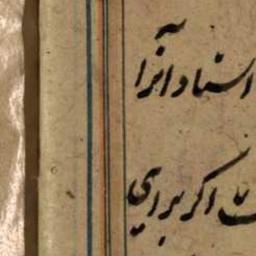 استاد آنرا
اگر برای